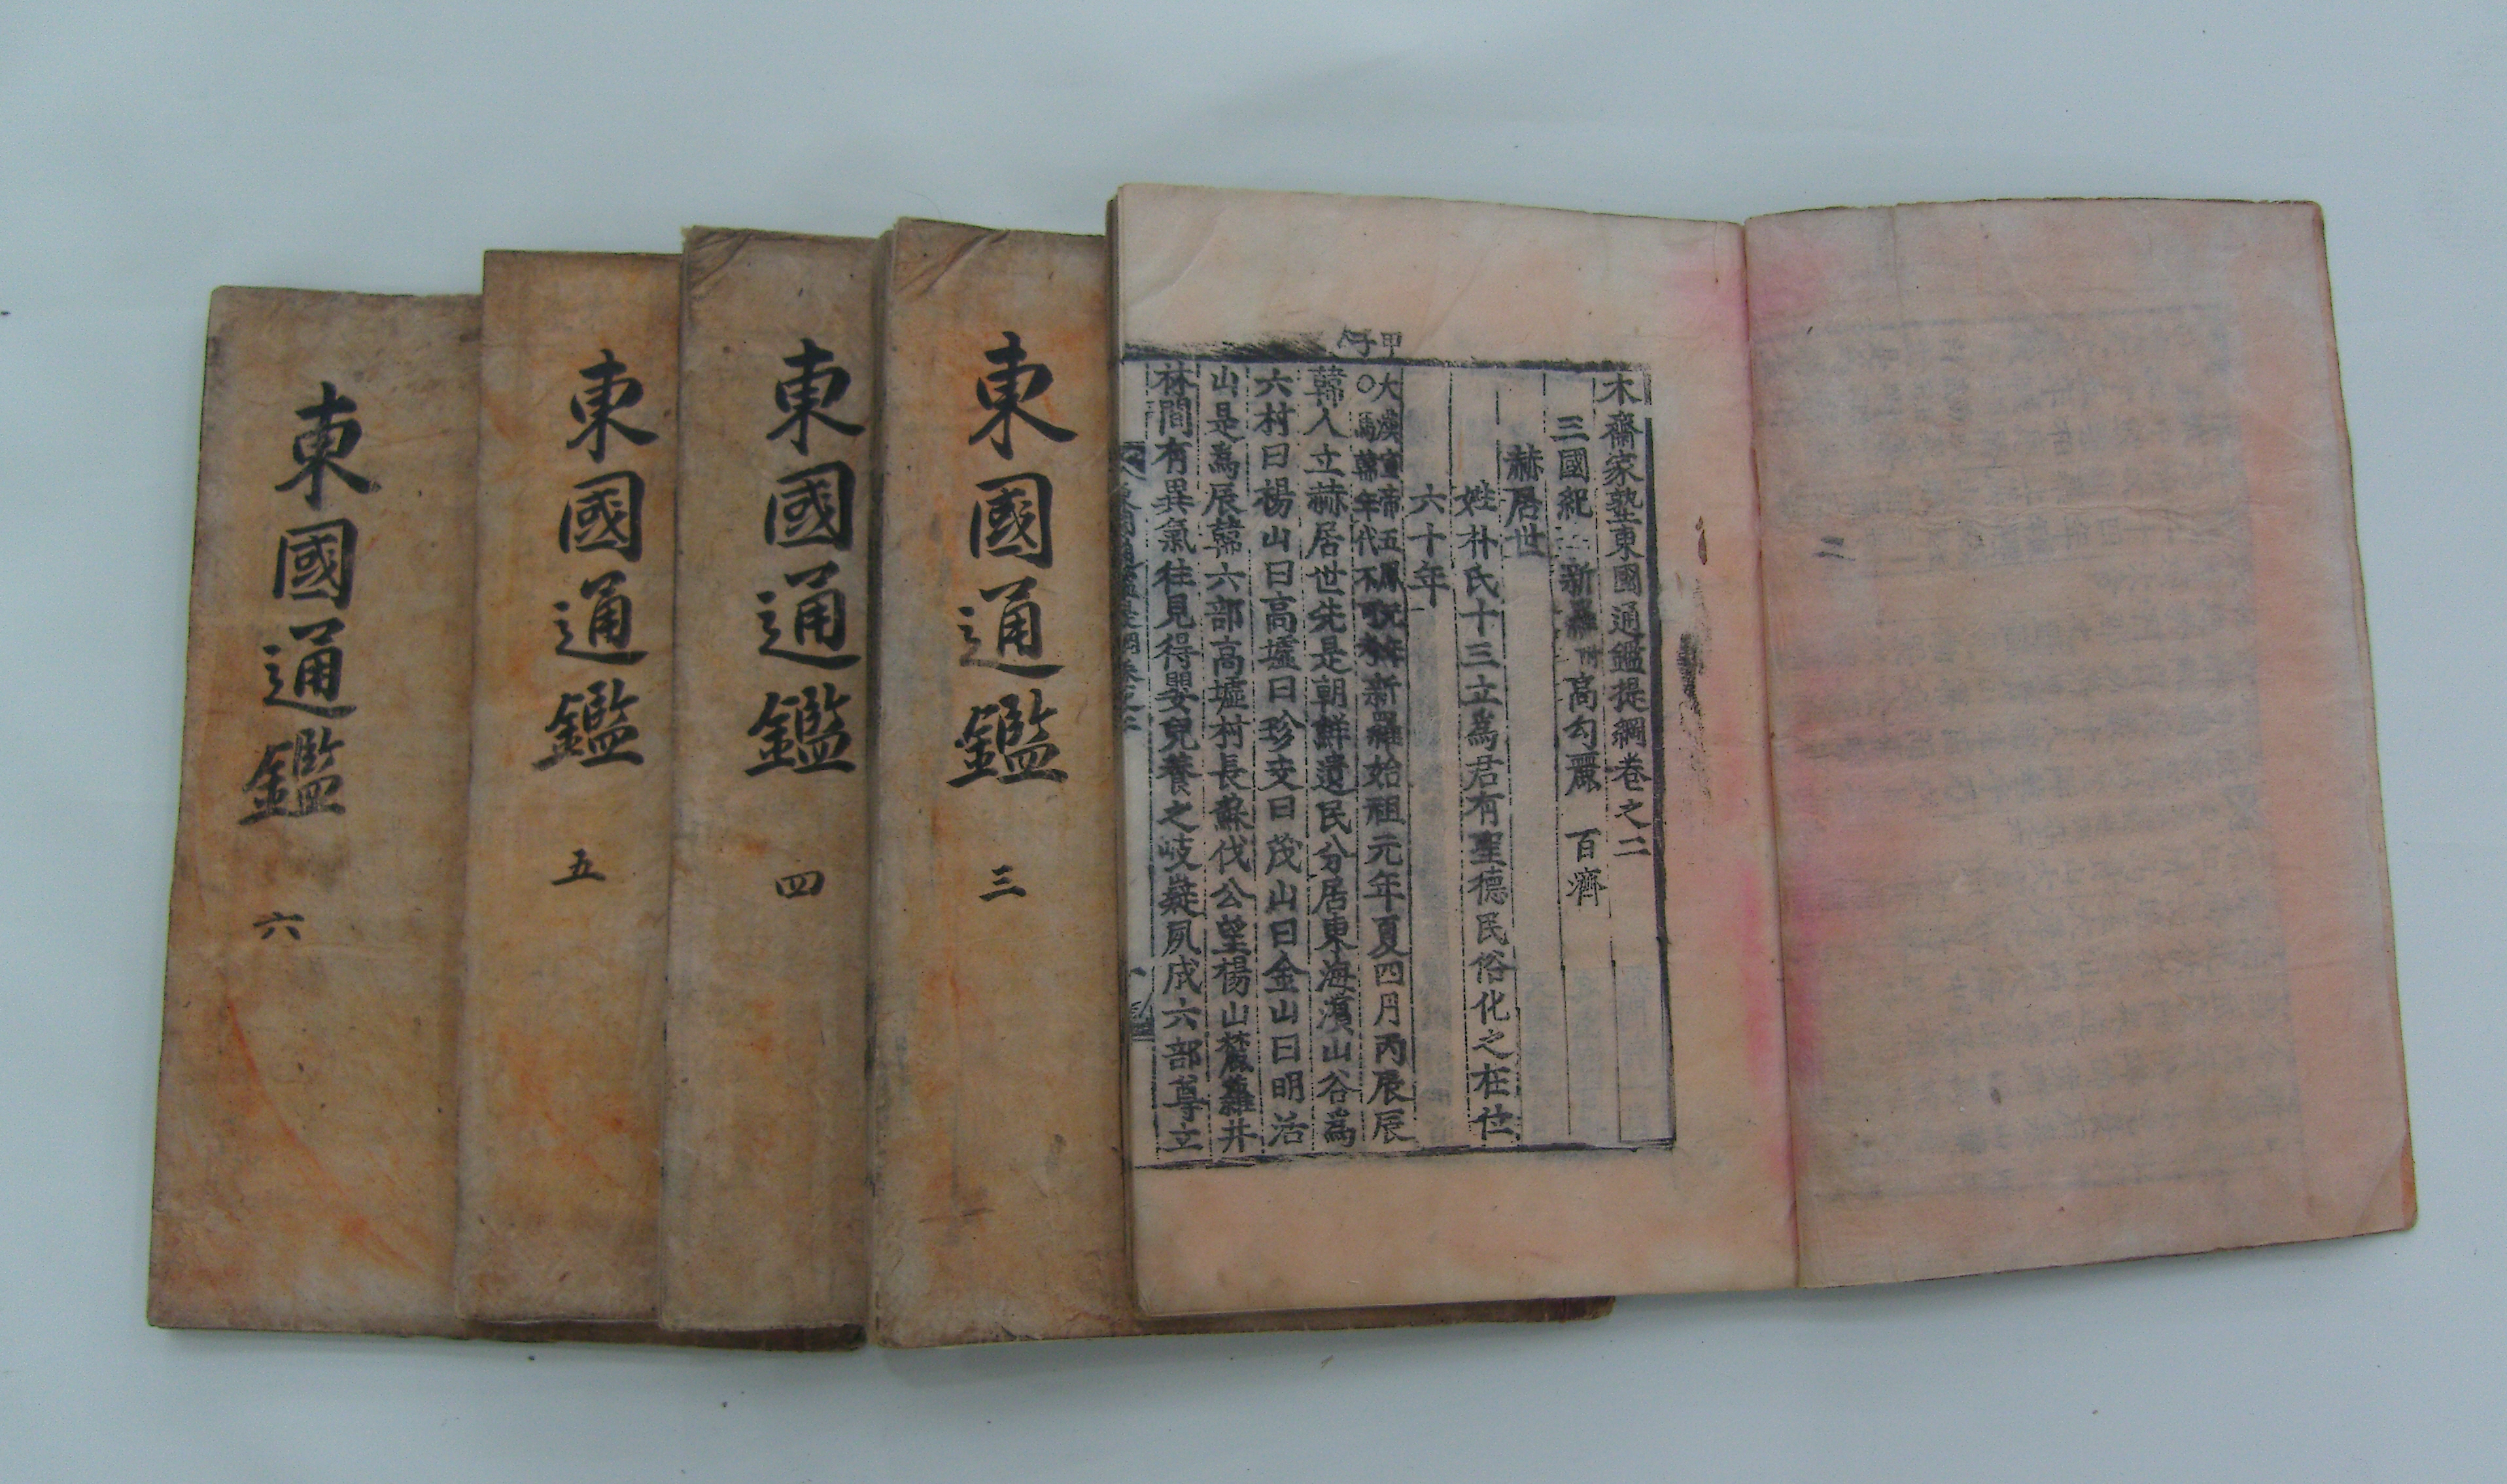 木齋家塾東國通鑑提綱卷之二
三國紀 新羅 附 高勾麗 百濟
赫居世
姓朴氏十三立爲君有聖德民俗化之在位
六十年
甲子
大漢宣帝五鳳新羅始祖元年夏四月丙辰辰
○馬韓年代不可攷
韓人立赫居世先是朝鮮遺民分居東海濱山谷爲
六村曰楊山曰高墟曰珍支曰茂山曰金山曰明活
山是爲辰韓六部高墟村長蘇伐公望楊山麓蘿井
林間有異氣往見得嬰兒養之岐嶷夙成六部尊立
東國通鑑 三
東國通鑑 四
東國通鑑 五
東國通鑑 六